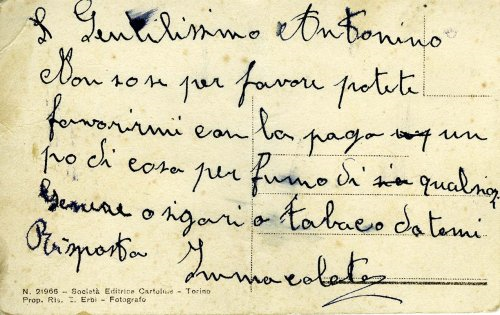 Gentilissimo Antonino
Non so se per favore potete
favorirmi con la paga un
po di cosa per fumo di qualsiasi
Genere o sigari o tabaco datemi
Risposta Immacolata
N. 21966 - Società Editrice Cartoline - Torino
Prop. Ris. E. Erbi - Fotografo